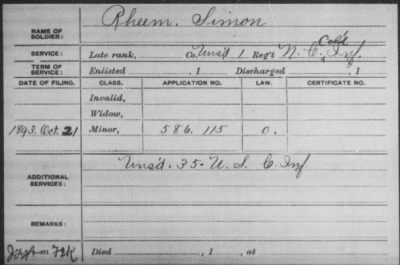 Rheem. Simon
NAME OF SOLDIER:
Col'd
SERVICE: Late rank, Co. Uns'd 1 Reg't N. C. Inf.
TERM OF SERVICE: Enlisted , 1 Discharged , 1
DATE OF FILING. CLASS. APPLICATION NO. LAW. CERTIFICATE NO.
Invalid,
Widow,
1893. Oct. 21 Minor, 586.115 O.
Uns'd. 35. U. S. C. Inf
ADDITIONAL SERVICES:
REMARKS:
Died , 1 , at